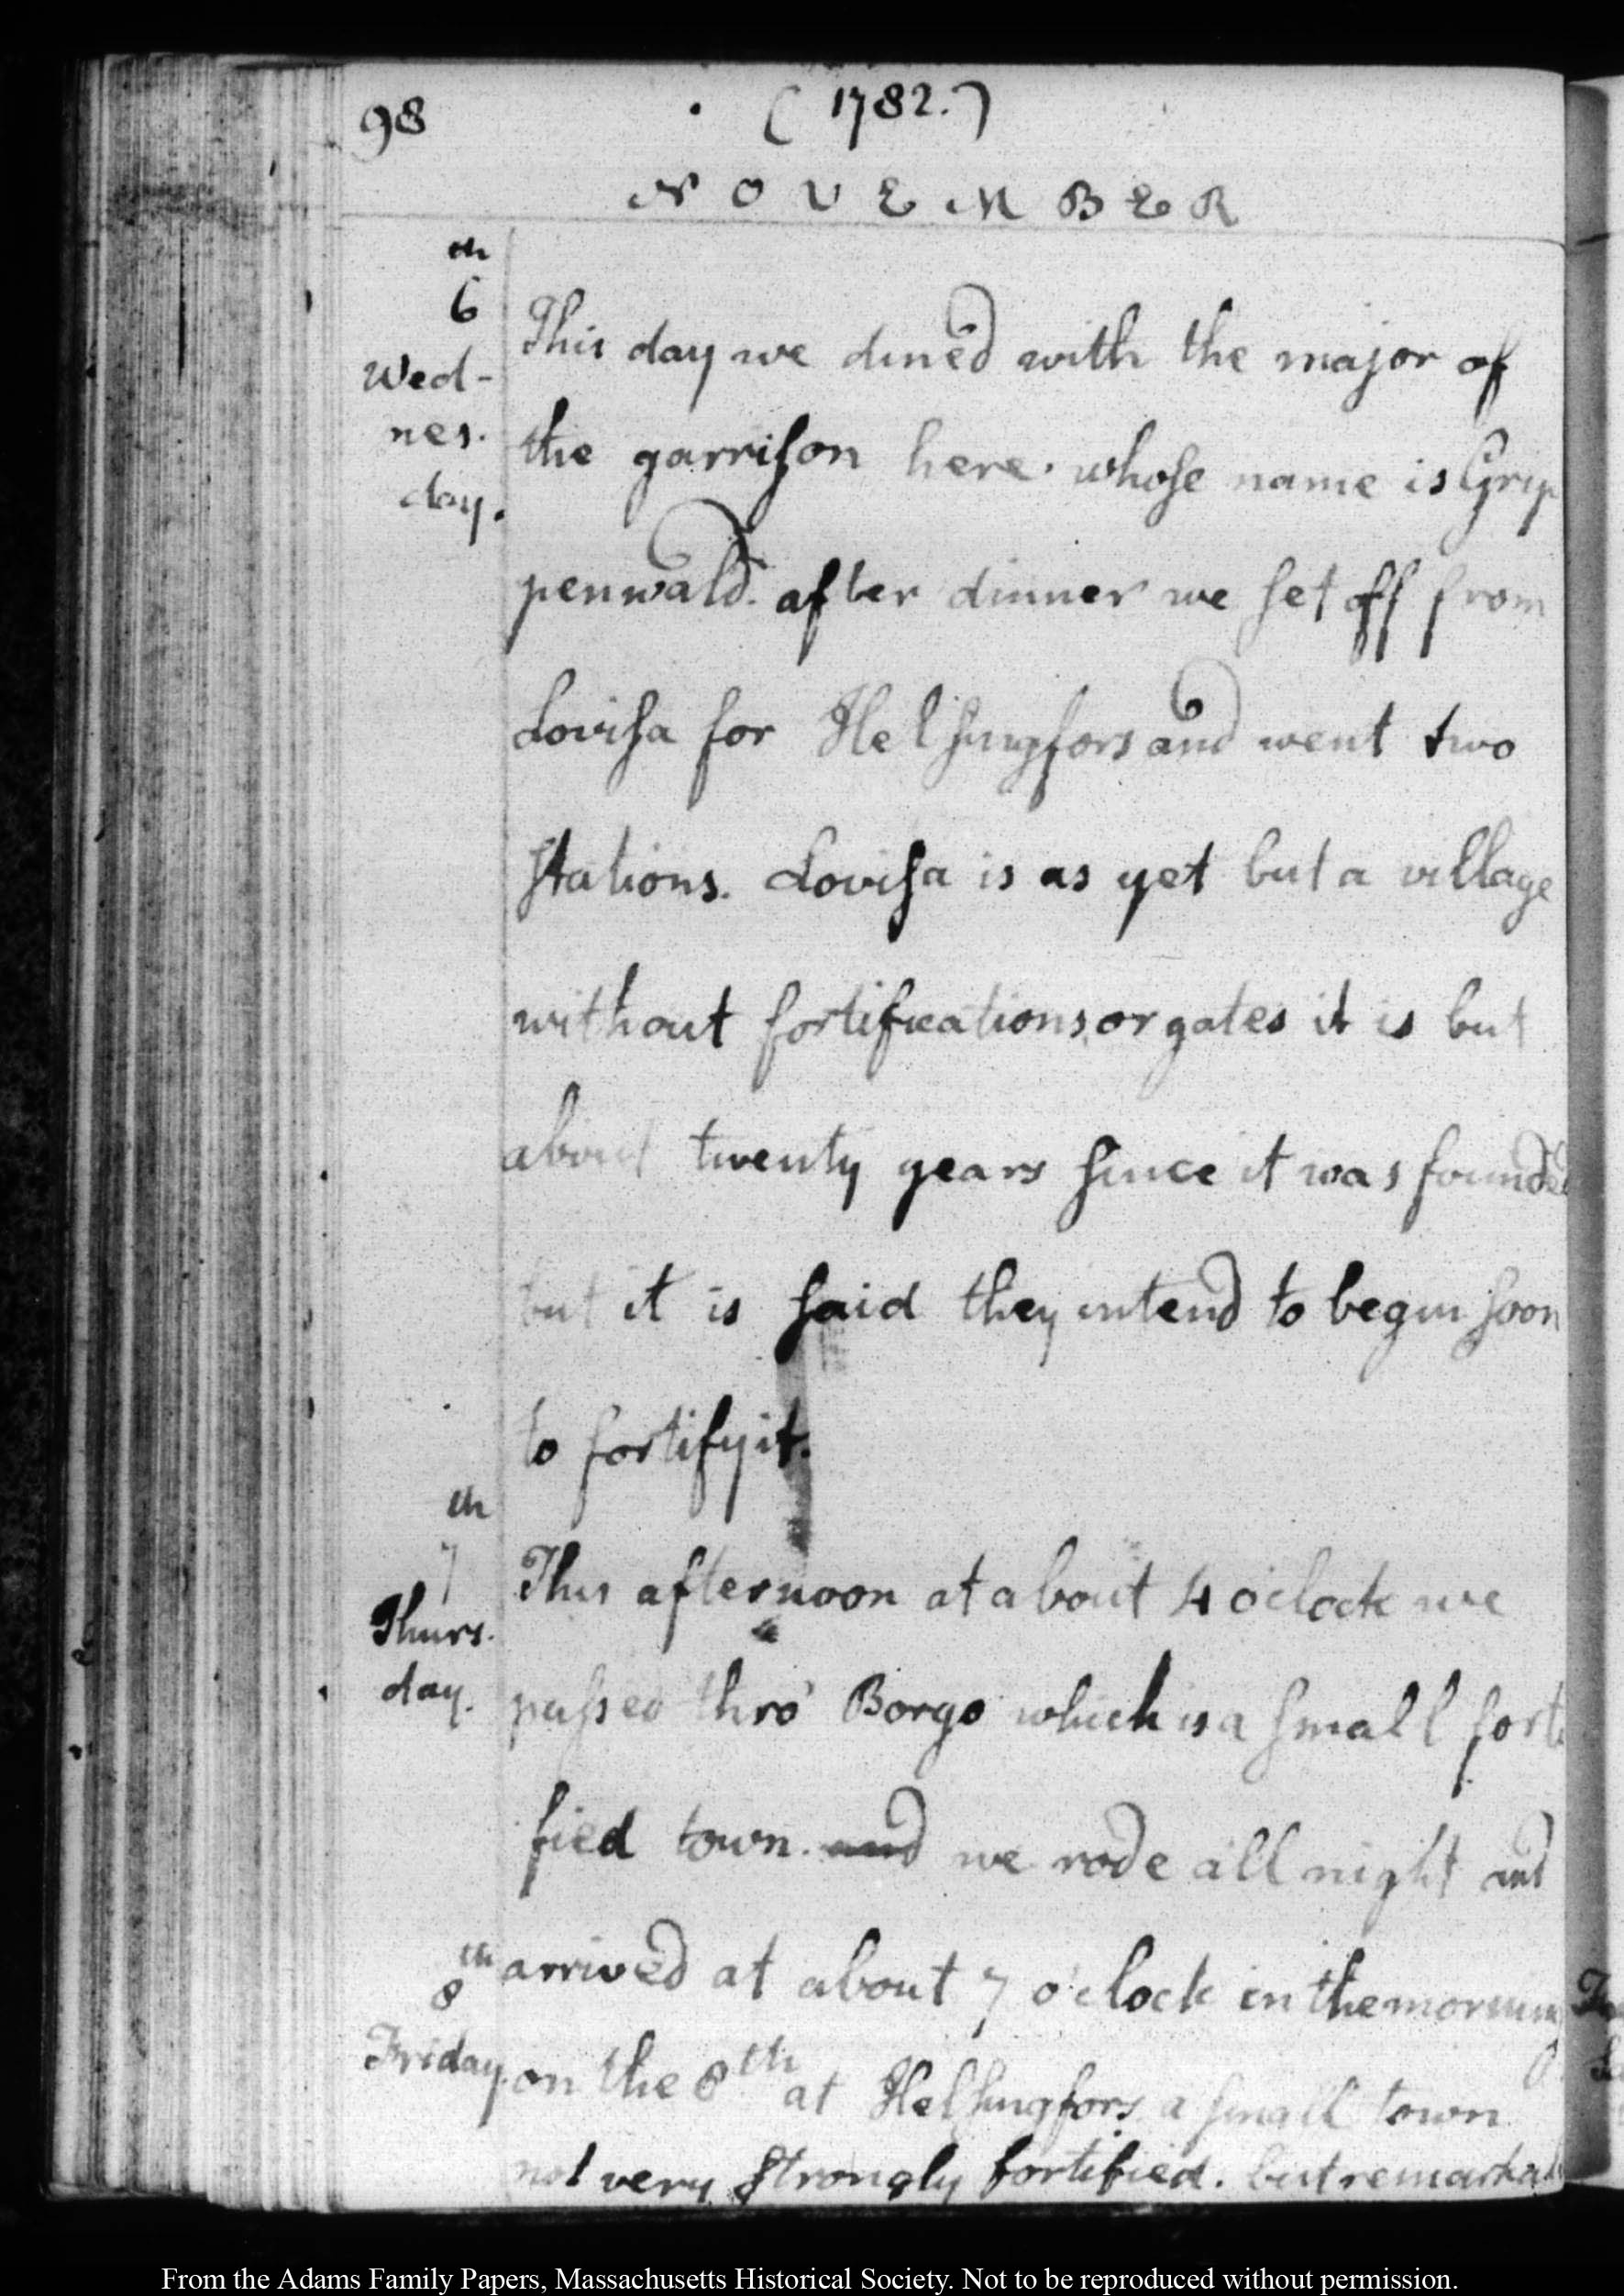 98
( 1782. )
NOVEMBER
th
6
Wed-
nes.
day.
This day we dined with the major of
the garrison here. whose name is Grip
penwald. after dinner we set off from
Lovisa for Helsingfors and went two
stations. Lovisa is as yet but a village
without fortifications, or gates it is but
about twenty years since it was founded
but it is said they intend to begin soon
to fortify it.
th
7
Thurs.
day.
This afternoon at about 4 o'clock we
passed thro' Borgo which is a small forti
fied town. and we rode all night and
th
8
Friday.
arrived at about 7 o'clock in the morning
on the 8th at Helsingfors a small town
not very strongly fortified. but remarkab
From the Adams Family Papers, Massachusetts Historical Society. Not to be reproduced without permission.